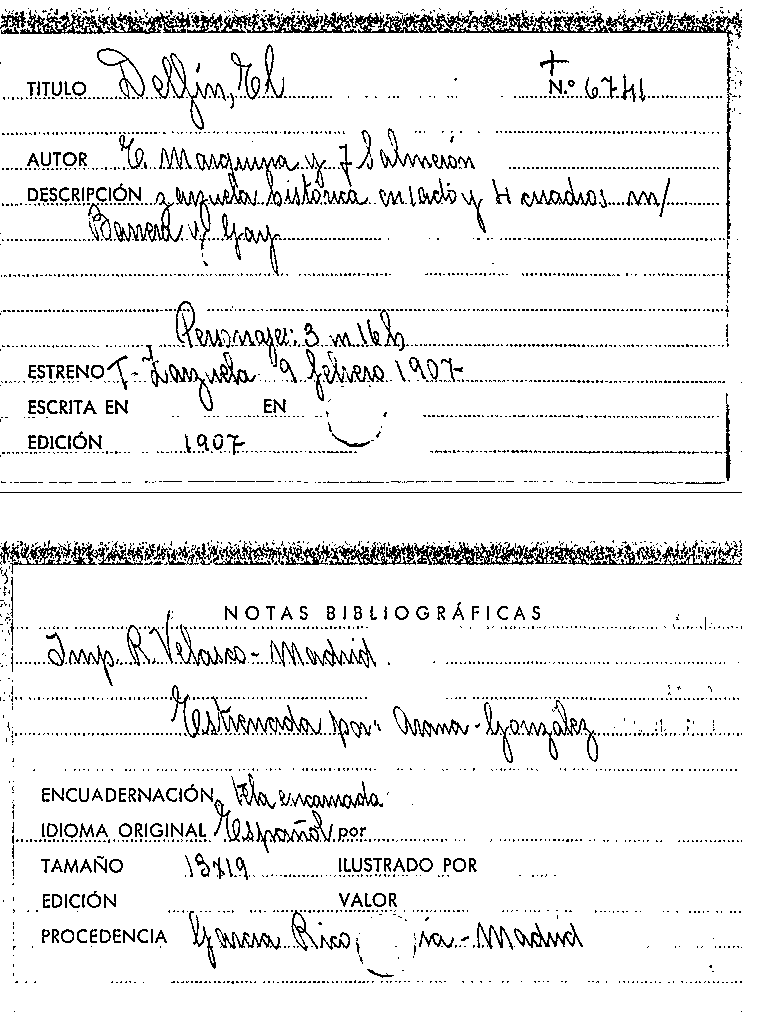 TITULO Delfín, El
+
N.º 6741
AUTOR E. Marquina y J Salmerón
DESCRIPCIÓN zarzuela histórica en 1 acto y 4 cuadros m/
Barrera y Gay
Personajes: 3 m 16 h
ESTRENO T- Zarzuela 9 febrero 1907
ESCRITA EN EN
EDICIÓN 1907
NOTAS BIBLIOGRÁFICAS
Imp. R. Velasco - Madrid
Estrenada por: Arana - González
ENCUADERNACIÓN tela encarnada
IDIOMA ORIGINAL Español por
TAMAÑO 13x19 ILUSTRADO POR
EDICIÓN VALOR
PROCEDENCIA García Rico ía - Madrid